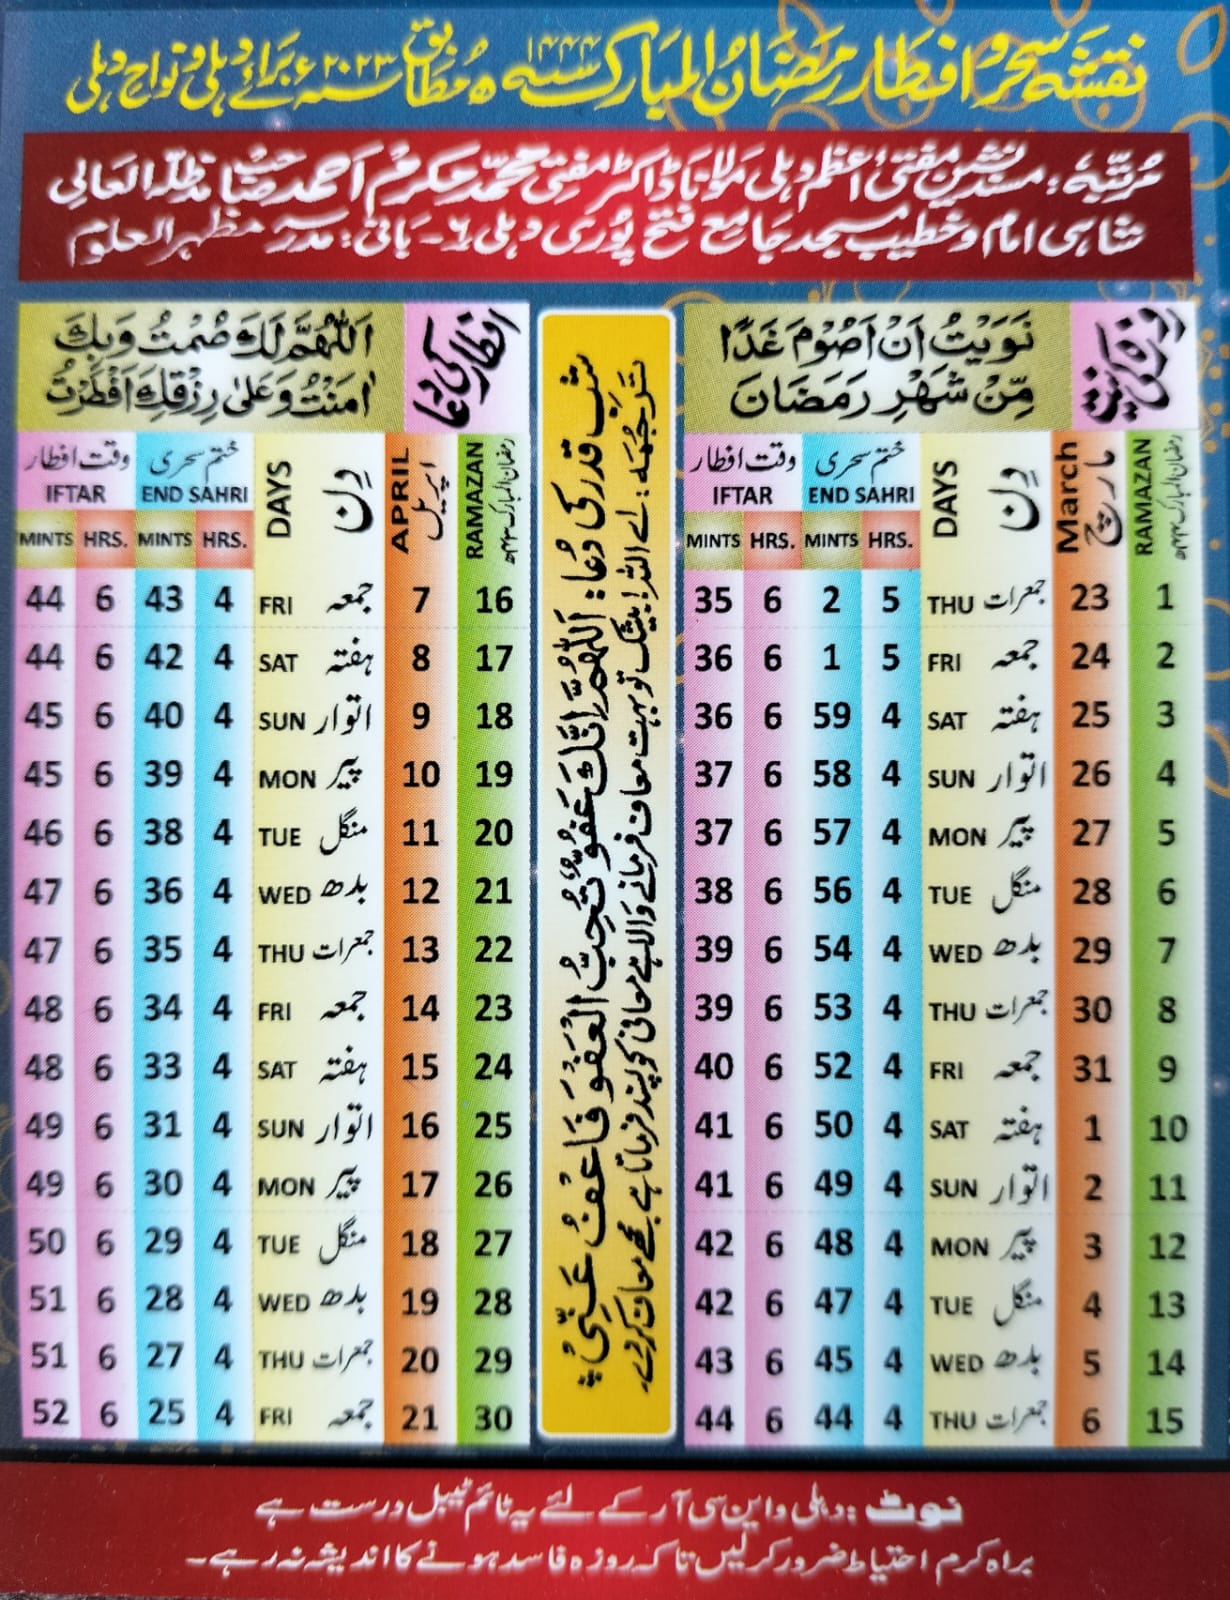 نقشہ سحر و افطار رمضان المبارک سنہ ۱۴۴۴ھ مطابق سنہ ۲۰۲۳ء برائے دہلی و نواح دہلی
مرتبہ: مسند نشین مفتی اعظم دہلی مولانا ڈاکٹر مفتی محمد مکرم احمد صاحب مدظلہ العالی
شاہی امام و خطیب مسجد جامع فتح پوری دہلی ۶۔ بانی: مدرسہ مظہر العلوم
روزہ کی نیت
نَوَيْتُ اَنْ اَصُوْمَ غَدًا
مِّنْ شَهْرِ رَمَضَانَ
RAMAZAN رمضان المبارک ۱۴۴۴ھ
March مارچ
DAYS دِن
ختم سحری وقت افطار
IFTAR END SAHRI
MINTS HRS. MINTS HRS.
35 6 2 5 THU جمعرات 23 1
36 6 1 5 FRI جمعہ 24 2
36 6 59 4 SAT ہفتہ 25 3
37 6 58 4 SUN اتوار 26 4
37 6 57 4 MON پیر 27 5
38 6 56 4 TUE منگل 28 6
39 6 54 4 WED بدھ 29 7
39 6 53 4 THU جمعرات 30 8
40 6 52 4 FRI جمعہ 31 9
41 6 50 4 SAT ہفتہ 1 10
41 6 49 4 SUN اتوار 2 11
42 6 48 4 MON پیر 3 12
42 6 47 4 TUE منگل 4 13
43 6 45 4 WED بدھ 5 14
44 6 44 4 THU جمعرات 6 15
شب قدر کی دُعا: اَللّٰهُمَّ اِنَّكَ عَفُوٌّ تُحِبُّ الْعَفْوَ فَاعْفُ عَنِّيْ
ترجمہ: اے اللہ! بیشک تو بہت معاف فرمانے والا ہے معافی کو پسند فرماتا ہے مجھے معاف کر دے۔
افطار کی دعا
اَللّٰهُمَّ لَكَ صُمْتُ وَبِكَ
اٰمَنْتُ وَعَلٰى رِزْقِكَ اَفْطَرْتُ
RAMAZAN رمضان المبارک ۱۴۴۴ھ
APRIL اپریل
DAYS دِن
ختم سحری وقت افطار
IFTAR END SAHRI
MINTS HRS. MINTS HRS.
44 6 43 4 FRI جمعہ 7 16
44 6 42 4 SAT ہفتہ 8 17
45 6 40 4 SUN اتوار 9 18
45 6 39 4 MON پیر 10 19
46 6 38 4 TUE منگل 11 20
47 6 36 4 WED بدھ 12 21
47 6 35 4 THU جمعرات 13 22
48 6 34 4 FRI جمعہ 14 23
48 6 33 4 SAT ہفتہ 15 24
49 6 31 4 SUN اتوار 16 25
49 6 30 4 MON پیر 17 26
50 6 29 4 TUE منگل 18 27
51 6 28 4 WED بدھ 19 28
51 6 27 4 THU جمعرات 20 29
52 6 25 4 FRI جمعہ 21 30
نوٹ: دہلی و این سی آر کے لئے یہ ٹائم ٹیبل درست ہے
براہ کرم احتیاط ضرور کرلیں تاکہ روزہ فاسد ہونے کا اندیشہ نہ رہے۔